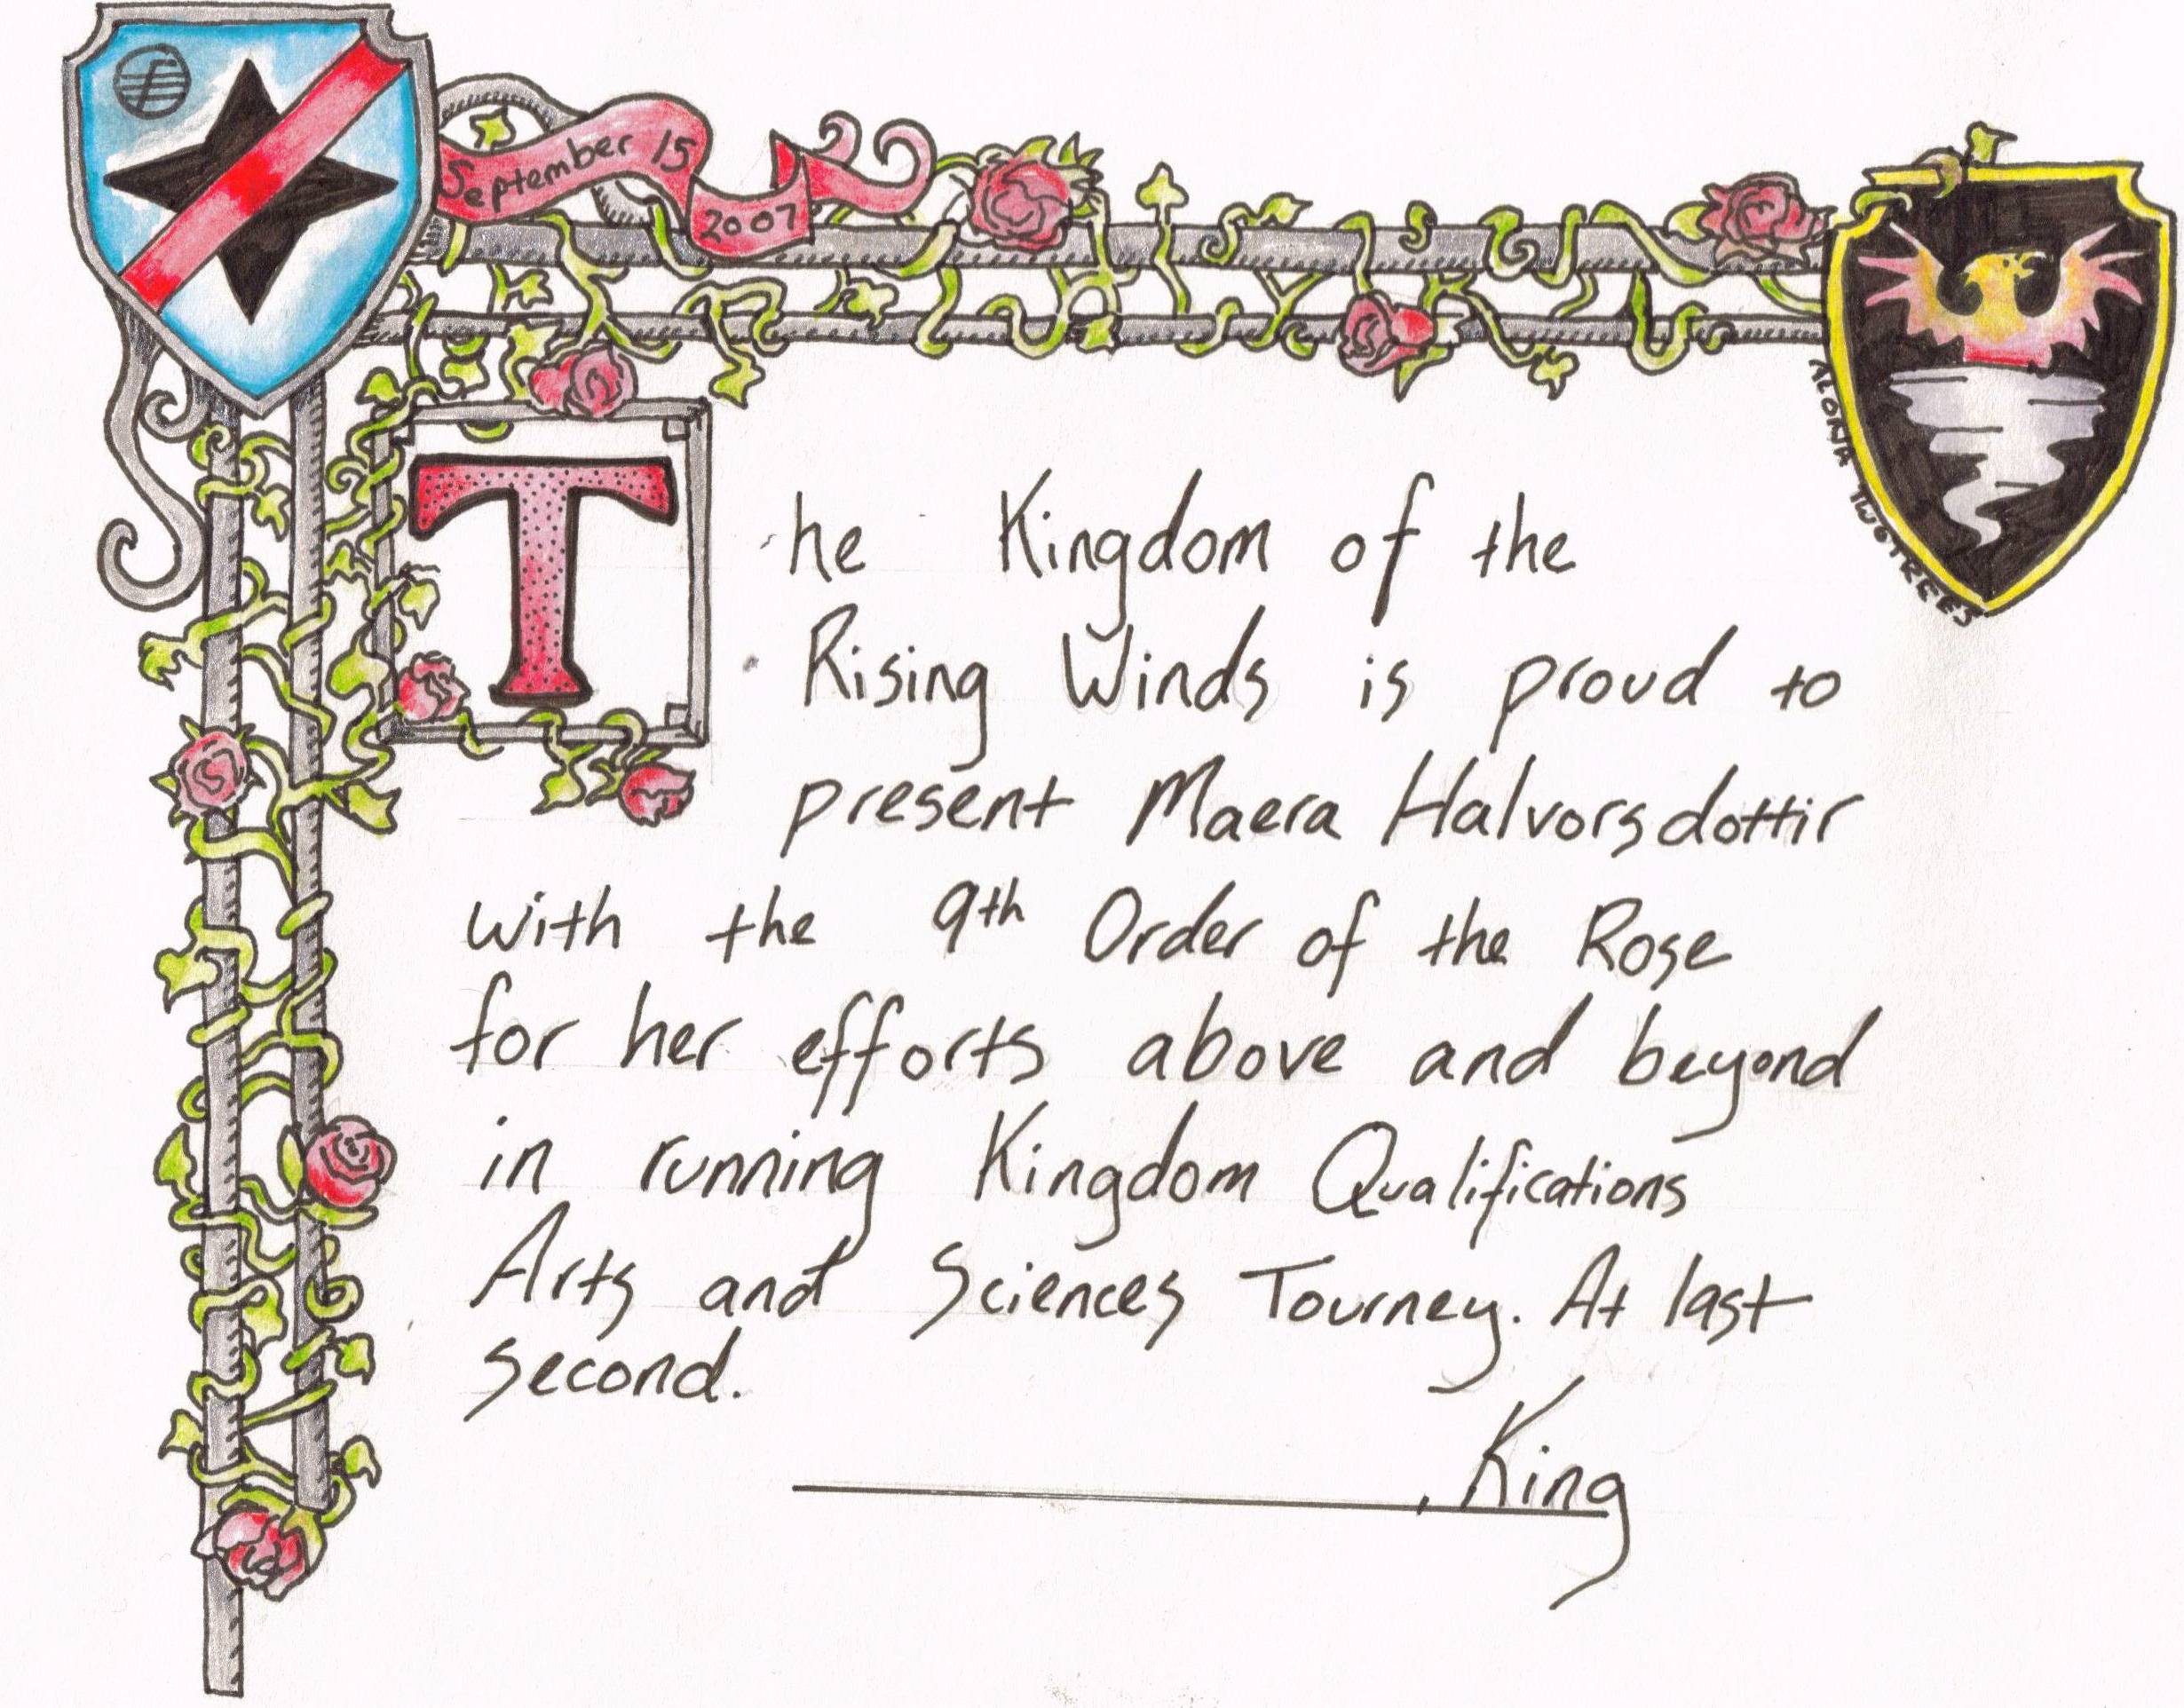 September 15
2007
ALONA TWOTREES
The Kingdom of the
Rising Winds is proud to
present Maera Halvorsdottir
with the 9th Order of the Rose
for her efforts above and beyond
in running Kingdom Qualifications
Arts and Sciences Tourney. At last
second.
, King